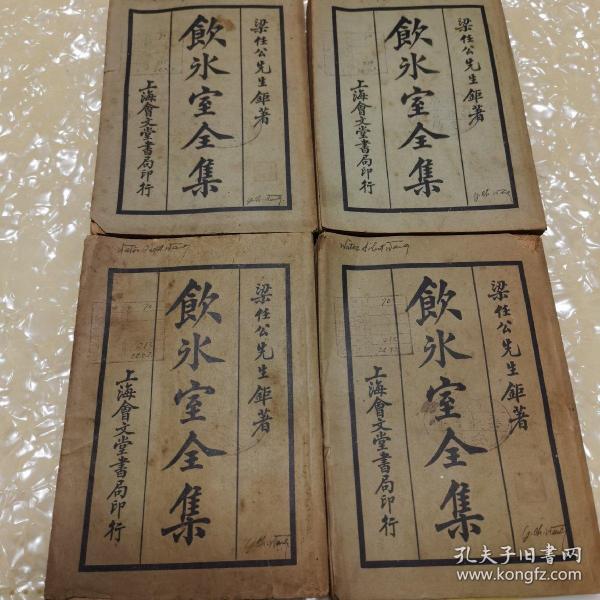 梁任公先生鉅著
飲冰室全集
上海會文堂書局印行
梁任公先生鉅著
飲冰室全集
上海會文堂書局印行
梁任公先生鉅著
飲冰室全集
上海會文堂書局印行
梁任公先生鉅著
飲冰室全集
上海會文堂書局印行
孔夫子旧书网
www.kongfz.com